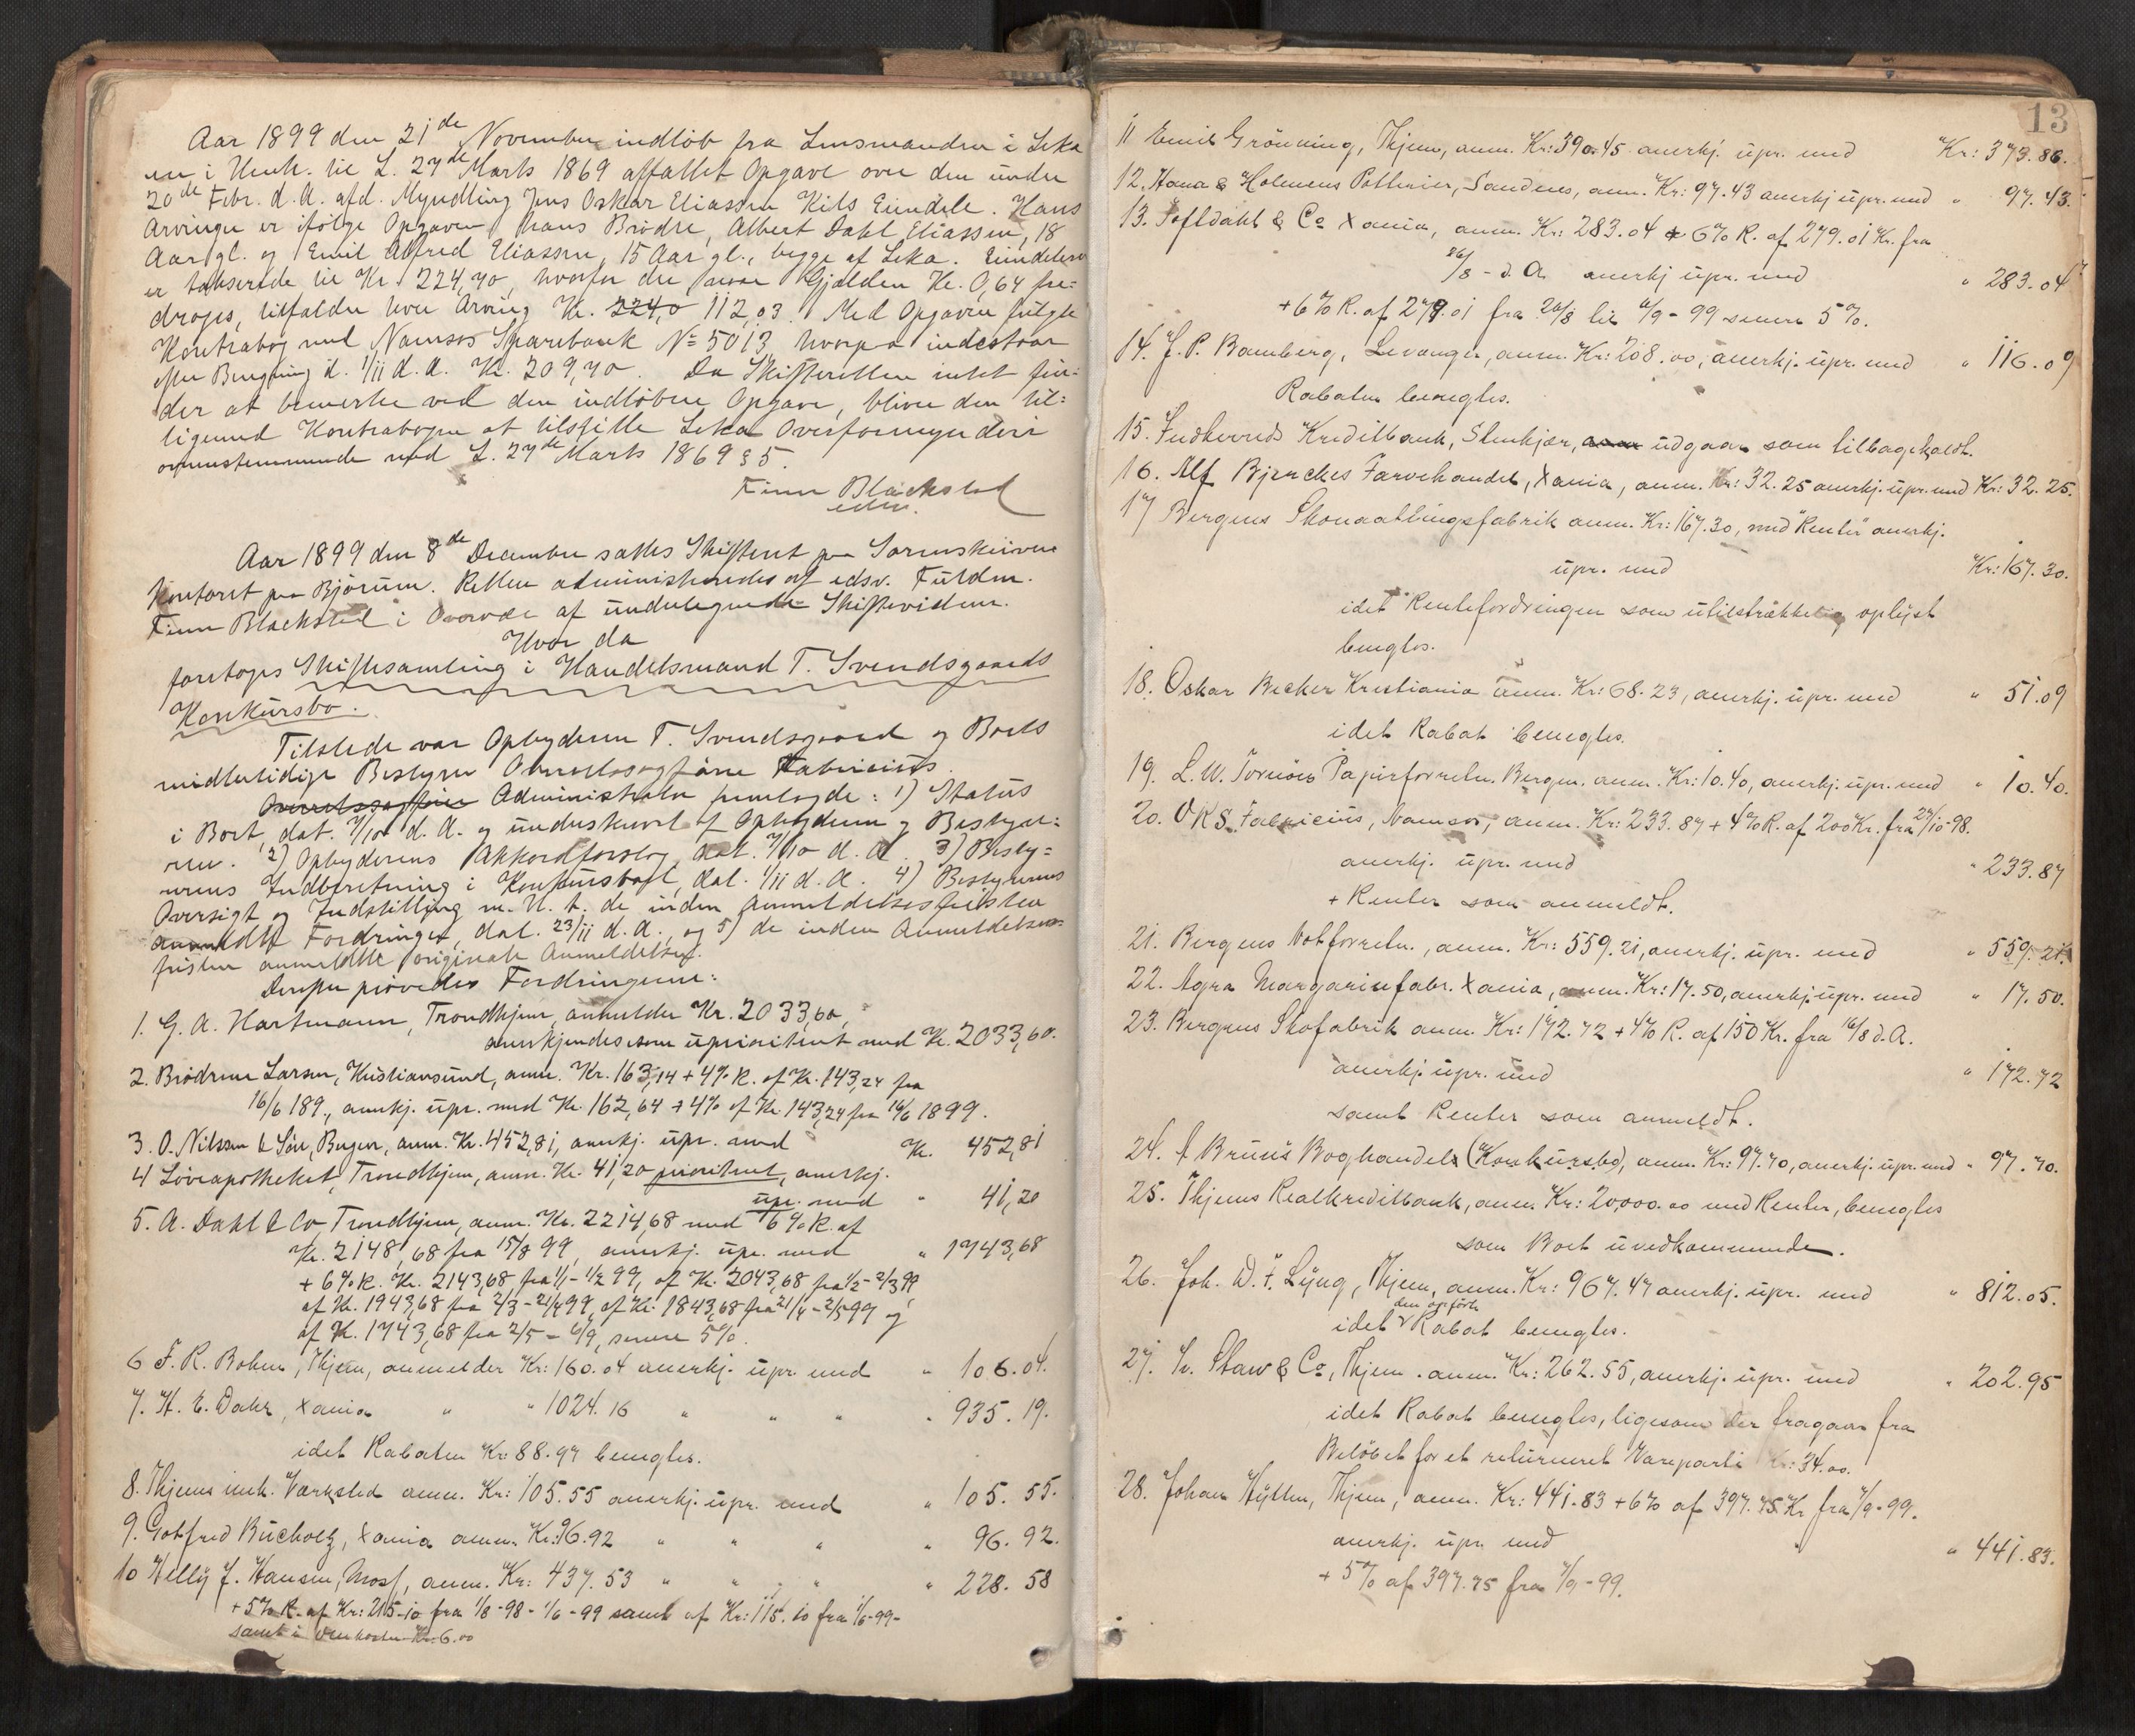 Aar 1899 den 21de November indløb fra Lensmanden i Leka
en i Henh. til L. 27de Marts 1869 affattet Opgave over den under
20de Febr. d. A. afd. Myndling Jens Oskar Eliassen Kils Eiendele. Hans
Arvinger er ifølge Opgaven hans Brødre, Albert Dahl Eliassen, 18
Aar gl. og Emil Alfred Eliassen, 15 Aar gl., begge af Leka. Eiendelene
er takserede til Kr. 224,70, hvorfor der, naar Gjælden Kr. 0,64 fra=
drages, tilfalder hver Arving Kr. 224,0 112,03. Med Opgaven fulgte
Kontrabog med Namsos Sparebank No 5013, hvorpaa indestaar
efter Beregning d. 1/11 d. A. Kr. 209,70. Da Skifteretten intet fin=
der at bemerke ved den indløbne Opgave, bliver den til=
ligemed Kontrabogen at tilstille Leka Overformynderi
overensstemmende med L. 27de Marts 1869 § 5.
Finn Blackstad
edsv.
Aar 1899 den 8de December sattes Skifteret paa Sorenskriver
kontoret paa Bjørum. Retten administreredes af edsv. Fuldm.
Finn Blackstad i Overvær af undertegnede Skiftevidner.
Hvor da
foretoges Skiftesamling i Handelsmand T. Svendsgaards
Konkursbo.
Tilstede var Opbyderen T. Svendsgaard og Boets
midlertidige Bestyrer Overretssagfører Fabricius.
Overretssagfører Administrator fremlagde: 1) Status
i Boet, dat. 7/10 d. A. og underskrevet af Opbyderen og Bestyre=
ren. 2) Opbyderens Akkordforslag, dat. 7/10 d. A. 3) Besty=
rerens Indberetning i Konkursboet, dat. 1/11 d. A. 4) Bestyrerens
Oversigt og Indstilling m. H. t. de inden Anmeldelsesfristen
anmeldte Fordringer, dat. 23/11 d. A., og 5) de inden Anmeldelses=
fristen anmeldte originale Anmeldelser.
Derefter prøvedes Fordringerne:
1. G. A. Hartmann, Trondhjem, anmelder Kr. 2033,60,
anerkjendes som uprioriteret med Kr. 2033,60.
2. Brødrene Larsen, Kristiansund, anm. Kr. 163,14 + 4% R. af Kr. 143,24 fra
16/6 189., anerkj. upr. med Kr. 162,64 + 4% af Kr. 143,24 fra 16/6 1899.
3. O. Nilssen & Søn, Bergen, anm. Kr. 452,81, anerkj. upr. med Kr. 452,81
4 Løveapotheket, Trondhjem, anm. Kr. 41,20 prioriteret, anerkj.
upr. med " 41,20
5. A. Dahl & Co Trondhjem, anm. Kr. 2214,68 med 6% R. af
Kr. 2148,68 fra 15/8 99, anerkj. upr. med " 1743,68
+ 6% R. Kr. 2143,68 fra 1/1 - 1/2 99, af Kr. 2043,68 fra 1/2 - 2/3 99,
af Kr. 1943,68 fra 2/3 - 21/4 99, af Kr. 1843,68 fra 21/4 - 2/5 99 og
af Kr. 1743,68 fra 2/5 - 6/9, senere 5%.
6 F. R. Bohm, Thjem, anmelder Kr: 160.04 anerkj. upr. med " 106.04.
7. H. E. Dahr, Xania " " 1024.16 " " " " 935.19.
idet Rabaten Kr: 88.97 benegtes.
8. Thjems mek. Værksted anm. Kr: 105.55 anerkj. upr. med " 105.55.
9. Gotfred Bucholz, Xania anm. Kr: 96.92 " " " " 96.92.
10 Helly J. Hansen, Moss, anm. Kr: 437.53 " " " " 228.58
+ 5% R. af Kr: 215.10 fra 1/8-98 - 1/6-99 samt af Kr: 115.10 fra 1/6-99-
samt i Kr. 6.00
13
11 Emil Grönning, Thjem, anm. Kr: 390.45 anerkj. upr. med Kr: 373.86.
12. Hana & Holmens Potterier, Sandnes, anm. Kr: 97.43 anerkj upr. med " 97.43.
13. Toftdahl & Co Xania, anm. Kr: 283.04 + 6% R. af 279.01 Kr. fra
26/8 - d. A. anerkj upr. med " 283.04
+ 6% R. af 279.01 fra 26/8 til 6/9-99 senere 5%.
14. J. P. Bamberg, Levanger, anm. Kr: 208.00, anerkj. upr. med " 116.09
Rabaten benegtes.
15. Indherreds Kreditbank, Stenkjær, anm udgaar som tilbagekaldt.
16. Alf Bjerckes Farvehandel, Xania, anm. Kr: 32.25 anerkj. upr. med Kr: 32.25.
17 Bergens Skonaatlingsfabrik anm. Kr: 167.30, med "Renter" anerkj.
upr. med Kr: 167.30.
idet Rentefordringen som utilstrækkelig oplyst
benegtes.
18. Oskar Becker Kristiania anm. Kr: 68.23, anerkj. upr. med " 51.09
idet Rabat benegtes.
19. L. W. Tornöes Papirforretn. Bergen. anm. Kr: 10.40, anerkj. upr. med " 10.40.
20. ORS. Fabricius, Namsos, anm. Kr: 233.87 + 4% R. af 200 Kr. fra 27/10-98.
anerkj. upr. med " 233.87
+ Renter som anmeldt.
21. Bergens Notforretn., anm. Kr: 559.21, anerkj. upr. med " 559.21.
22. Agra Margarinfabr. Xania, anm. Kr: 17.50, anerkj upr. med " 17.50.
23. Bergens Skofabrik anm. Kr: 172.72 + 4% R. af 150 Kr. fra 16/8 d. A.
anerkj upr. med " 172.72
samt Renter som anmeldt.
24. Bruns Boghandels (Konkursbo), anm. Kr: 97.70, anerkj. upr. med " 97.70.
25. Thjems Realkreditbank, anm. Kr: 20,000.00 med Renter, benegtes
som Boet uvedkommende.
26. Joh. Lyng, Thjem, anm. Kr: 967.47 anerkj. upr. med " 812.05.
idet den opførte Rabat benegtes.
27. Staw & Co, Thjem. anm. Kr: 262.55, anerkj. upr. med " 202.95
idet Rabat benegtes, ligesom der fragaar fra
Beløbet for et returneret Vareparti Kr: 34.00.
28. Johan Hytten, Thjem, anm. Kr: 441.83 + 6% af 397.75 Kr fra 7/9-99.
anerkj. upr. med " 441.83.
+ 5% af 397.75 fra 7/9-99.